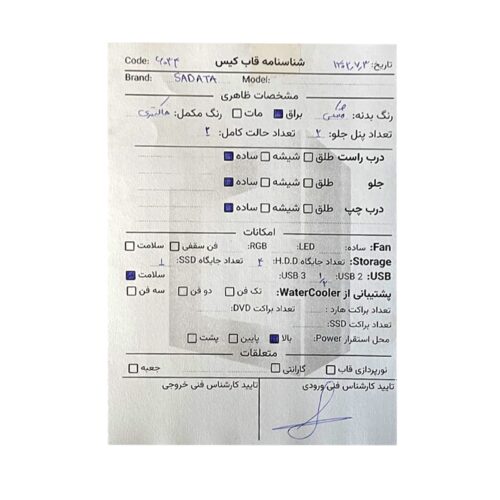 شناسنامه قاب کیس
تاریخ: ۱۴۰۲,۷,۳
Code: ۷۰۳۴
Brand: SADATA Model:
مشخصات ظاهری
رنگ بدنه: مشکی براق مات رنگ مکمل: خاکستری
تعداد پنل جلو: ۲ تعداد حالت کامل: ۲
درب راست طلق شیشه ساده
جلو طلق شیشه ساده
درب چپ طلق شیشه ساده
امکانات
Fan: ساده: LED: RGB: فن سقفی سلامت
Storage: تعداد جایگاه H.D.D: ۴ تعداد جایگاه SSD: ۱
USB: USB 2: USB 3 سلامت
پشتیبانی از WaterCooler: تک فن دو فن سه فن
تعداد براکت هارد: تعداد براکت DVD:
تعداد براکت SSD:
محل استقرار Power: بالا پایین پشت
متعلقات
نورپردازی قاب گارانتی جعبه
تایید کارشناس فنی ورودی تایید کارشناس فنی خروجی